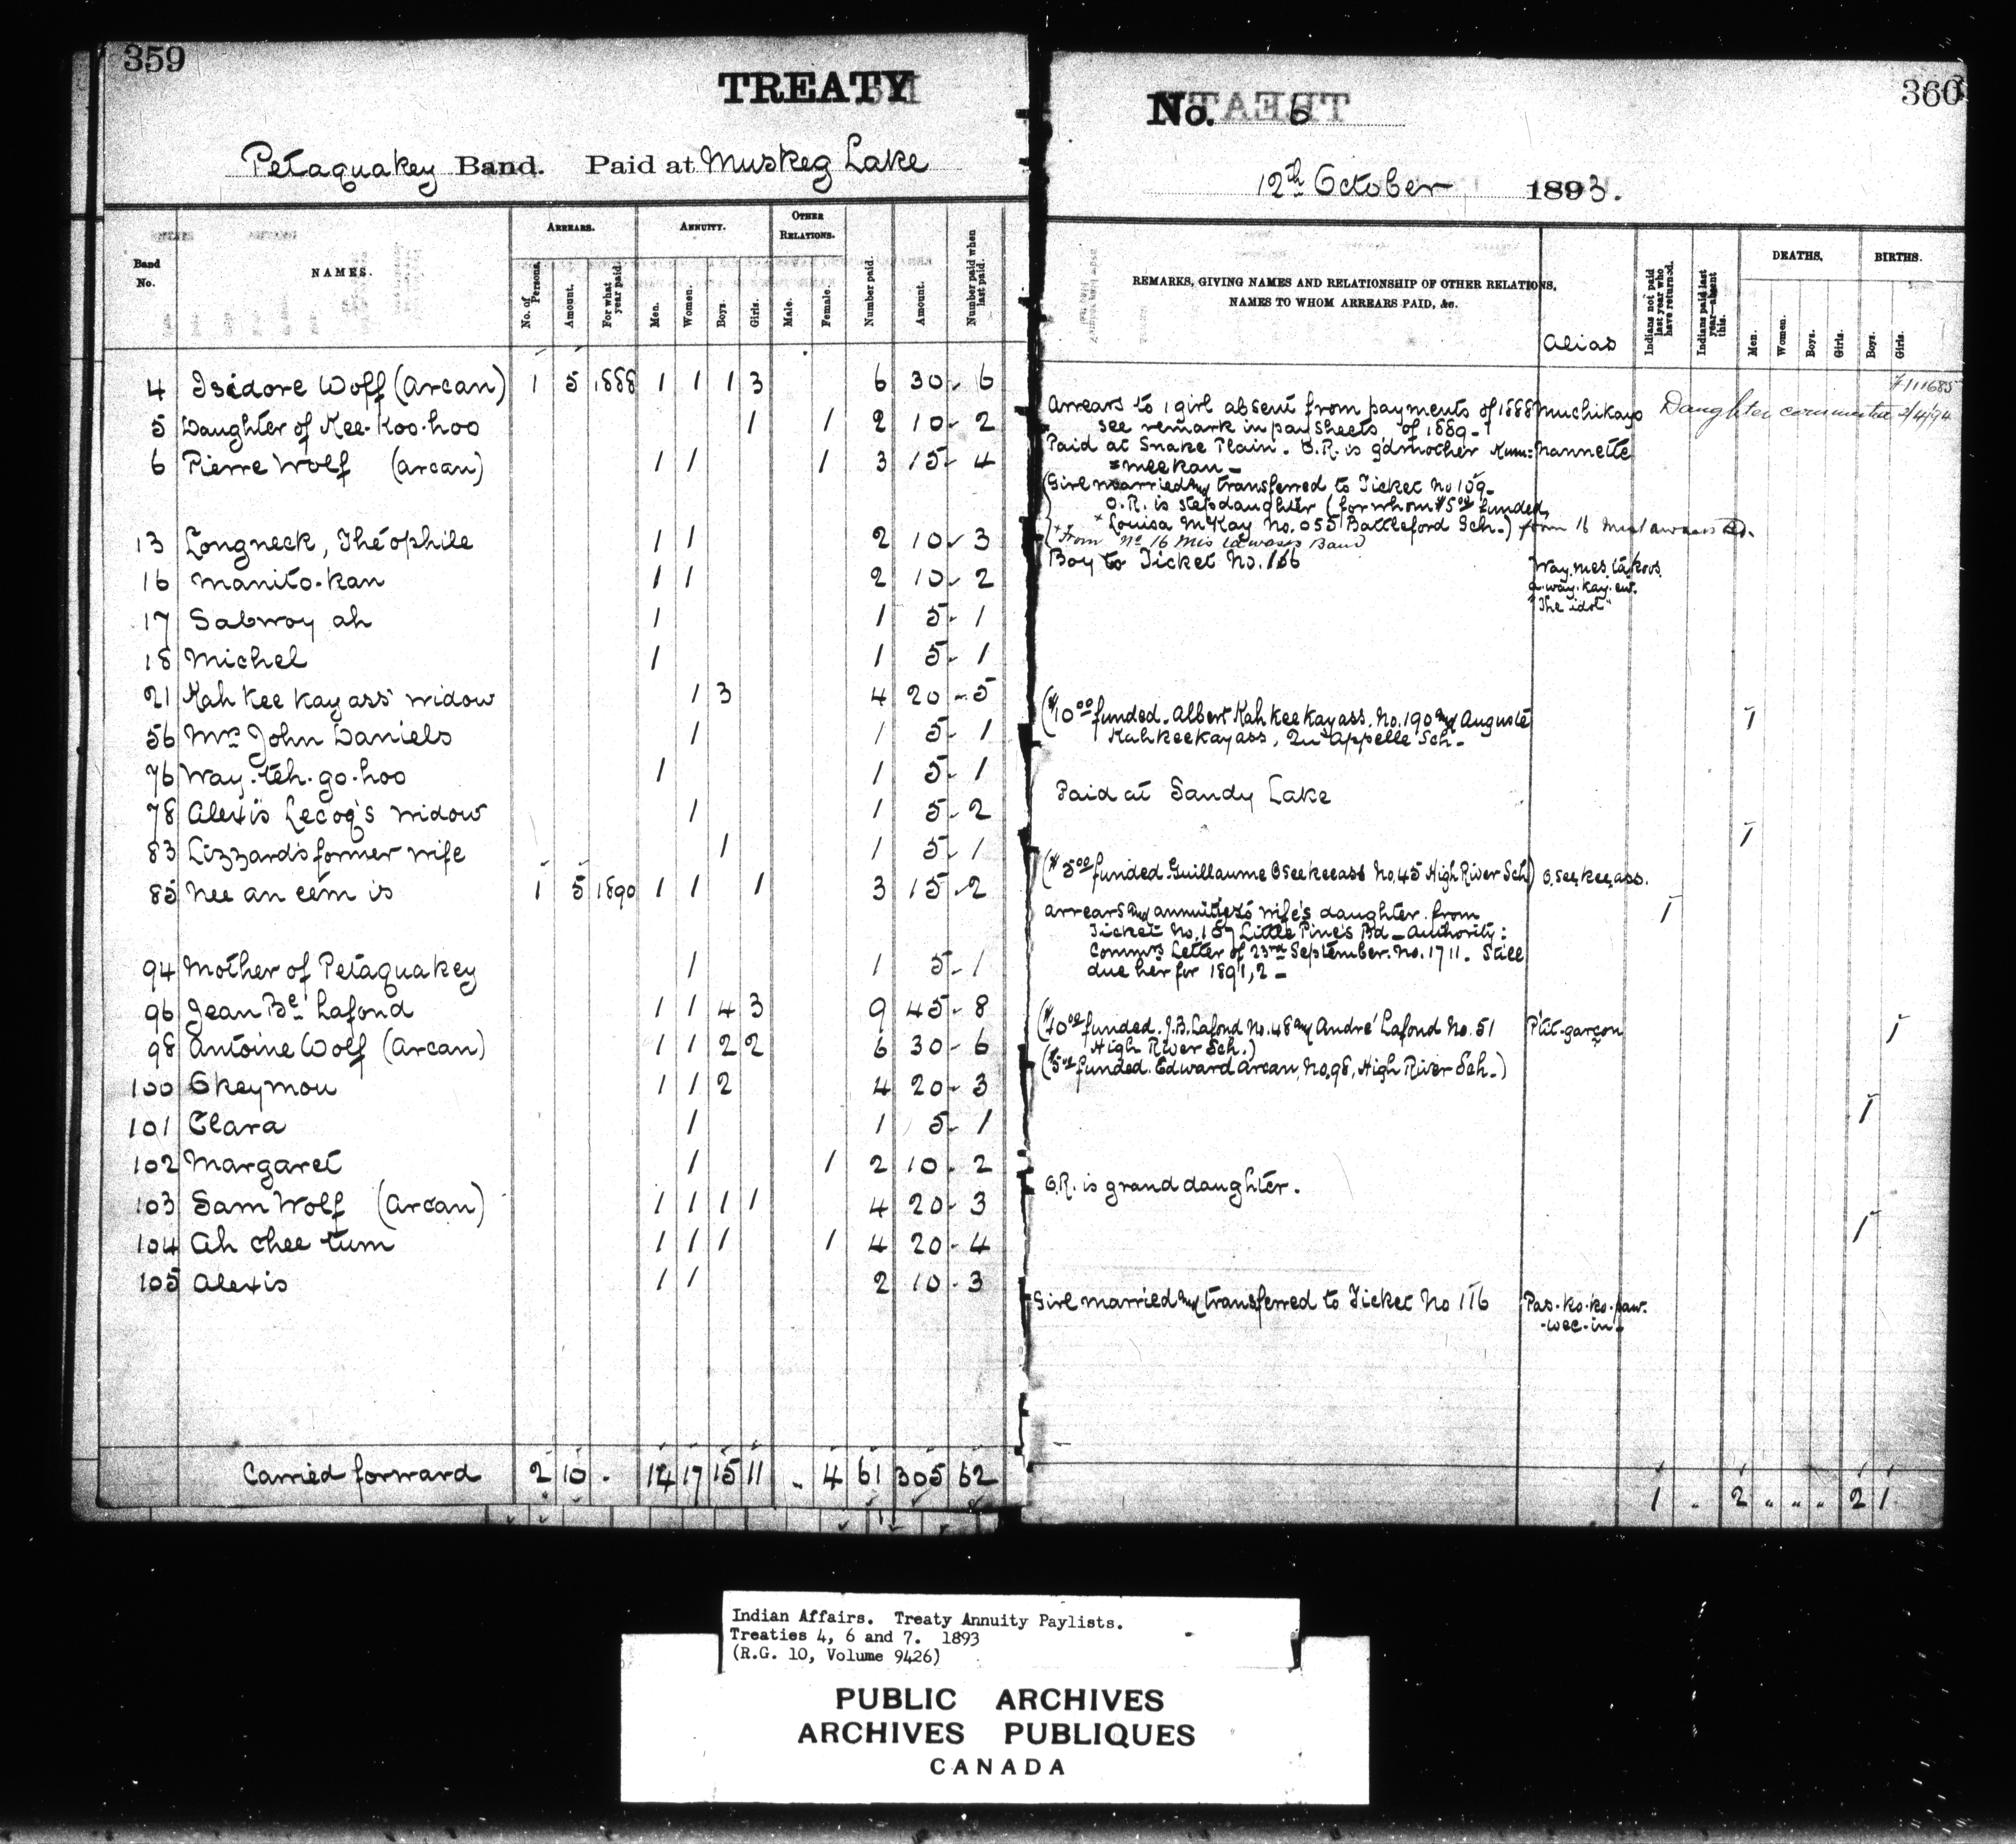 359
TREATY
Petaquakey Band. Paid at Muskeg Lake
Band No.
NAMES.
ARREARS.
No. of Persons.
Amount.
For what year paid.
ANNUITY.
Men.
Women.
Boys.
Girls.
OTHER RELATIONS.
Male.
Female.
Number paid.
Amount.
Number paid when last paid.
4 Isidore Wolf (Arcan) 1 5 1888 1 1 1 3 6 30 - 6
5 Daughter of Kee-Koo-hoo 1 1 2 10 - 2
6 Pierre Wolf (Arcan) 1 1 1 3 15 - 4
13 Longneck, Théophile 1 1 2 10 - 3
16 Manito-kan 1 1 2 10 - 2
17 Sabwoy ah 1 1 5 - 1
18 Michel 1 1 5 - 1
21 Kah kee kay ass' widow 1 3 4 20 - 5
56 Mrs John Daniels 1 1 5 - 1
76 Way-teh-go-hoo 1 1 5 - 1
78 Alexis Lecoq's widow 1 1 5 - 2
83 Lizzard's former wife 1 1 5 - 1
85 Nee an eem is 1 5 1890 1 1 1 3 15 - 2
94 Mother of Petaquakey 1 1 5 - 1
96 Jean Bte Lafond 1 1 4 3 9 45 - 8
98 Antoine Wolf (Arcan) 1 1 2 2 6 30 - 6
100 Okeymou 1 1 2 4 20 - 3
101 Clara 1 1 5 - 1
102 Margaret 1 1 2 10 - 2
103 Sam Wolf (Arcan) 1 1 1 1 4 20 - 3
104 Ah chee tum 1 1 1 1 4 20 - 4
105 Alexis 1 1 2 10 - 3
Carried forward 2 10 - 14 17 15 11 " 4 61 305 62
360
No. 6
12th October 1893.
REMARKS, GIVING NAMES AND RELATIONSHIP OF OTHER RELATIONS,
NAMES TO WHOM ARREARS PAID, &c.
Alias
Indians not paid last year who have returned.
Indians paid last year—absent this.
DEATHS,
Men.
Women.
Boys.
Girls.
BIRTHS.
Boys.
Girls.
111685
Arrears to 1 girl absent from payments of 1888 Muchikayo Daughter commuted 2/4/94
see remark in paysheets of 1889-
Paid at Snake Plain. O.R. is g'dmother Kum= Nannette
=meekan-
Girl married and transferred to Ticket No 109-
O.R. is stepdaughter (for whom $5.00 funded,
Louisa McKay No. 055 Battleford Sch.) from 16 Mistawasis Bd.
From No 16 Mistawasis Band
Boy to Ticket No. 106
Way.mes.ta.koos.
a.way.kay.ew.
"The idol"
($10.00 funded. Albert Kah kee kay ass. No. 190 and Auguste 1
Kahkeekayass, Qu'Appelle Sch-
Paid at Sandy Lake
1
($5.00 funded. Guillaume Oseekeeass No. 45 High River Sch) O.see.kee.ass.
Arrears and annuities to wife's daughter from 1
Ticket No. 157 Little Pine's Bd - Authority:
Commr's Letter of 23rd September. No. 1711. Still
due her for 1891, 2 -
($10.00 funded. J.B. Lafond No. 48 and André Lafond No. 51 P'tit-garçon 1
High River Sch.)
($5.00 funded. Edward Arcan, No. 98, High River Sch.)
1
O.R. is grand daughter.
1
Girl married and transferred to Ticket No 116 Pas-ko-ko-paw-
-wee-in-
1 " 2 " " " 2 1
Indian Affairs. Treaty Annuity Paylists.
Treaties 4, 6 and 7. 1893
(R.G. 10, Volume 9426)
PUBLIC ARCHIVES
ARCHIVES PUBLIQUES
CANADA